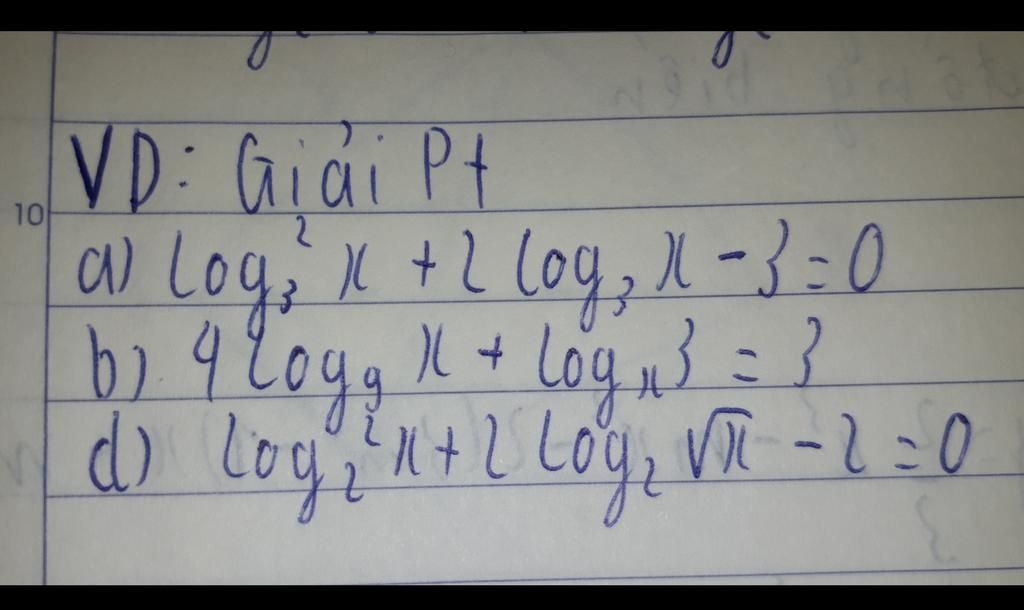 10
VD: Giải Pt
a) log₃² x + 2 log₃ x - 3 = 0
b) 4 log₉ x + logₓ 3 = 3
d) log₂² x + 2 log₂ √x - 2 = 0